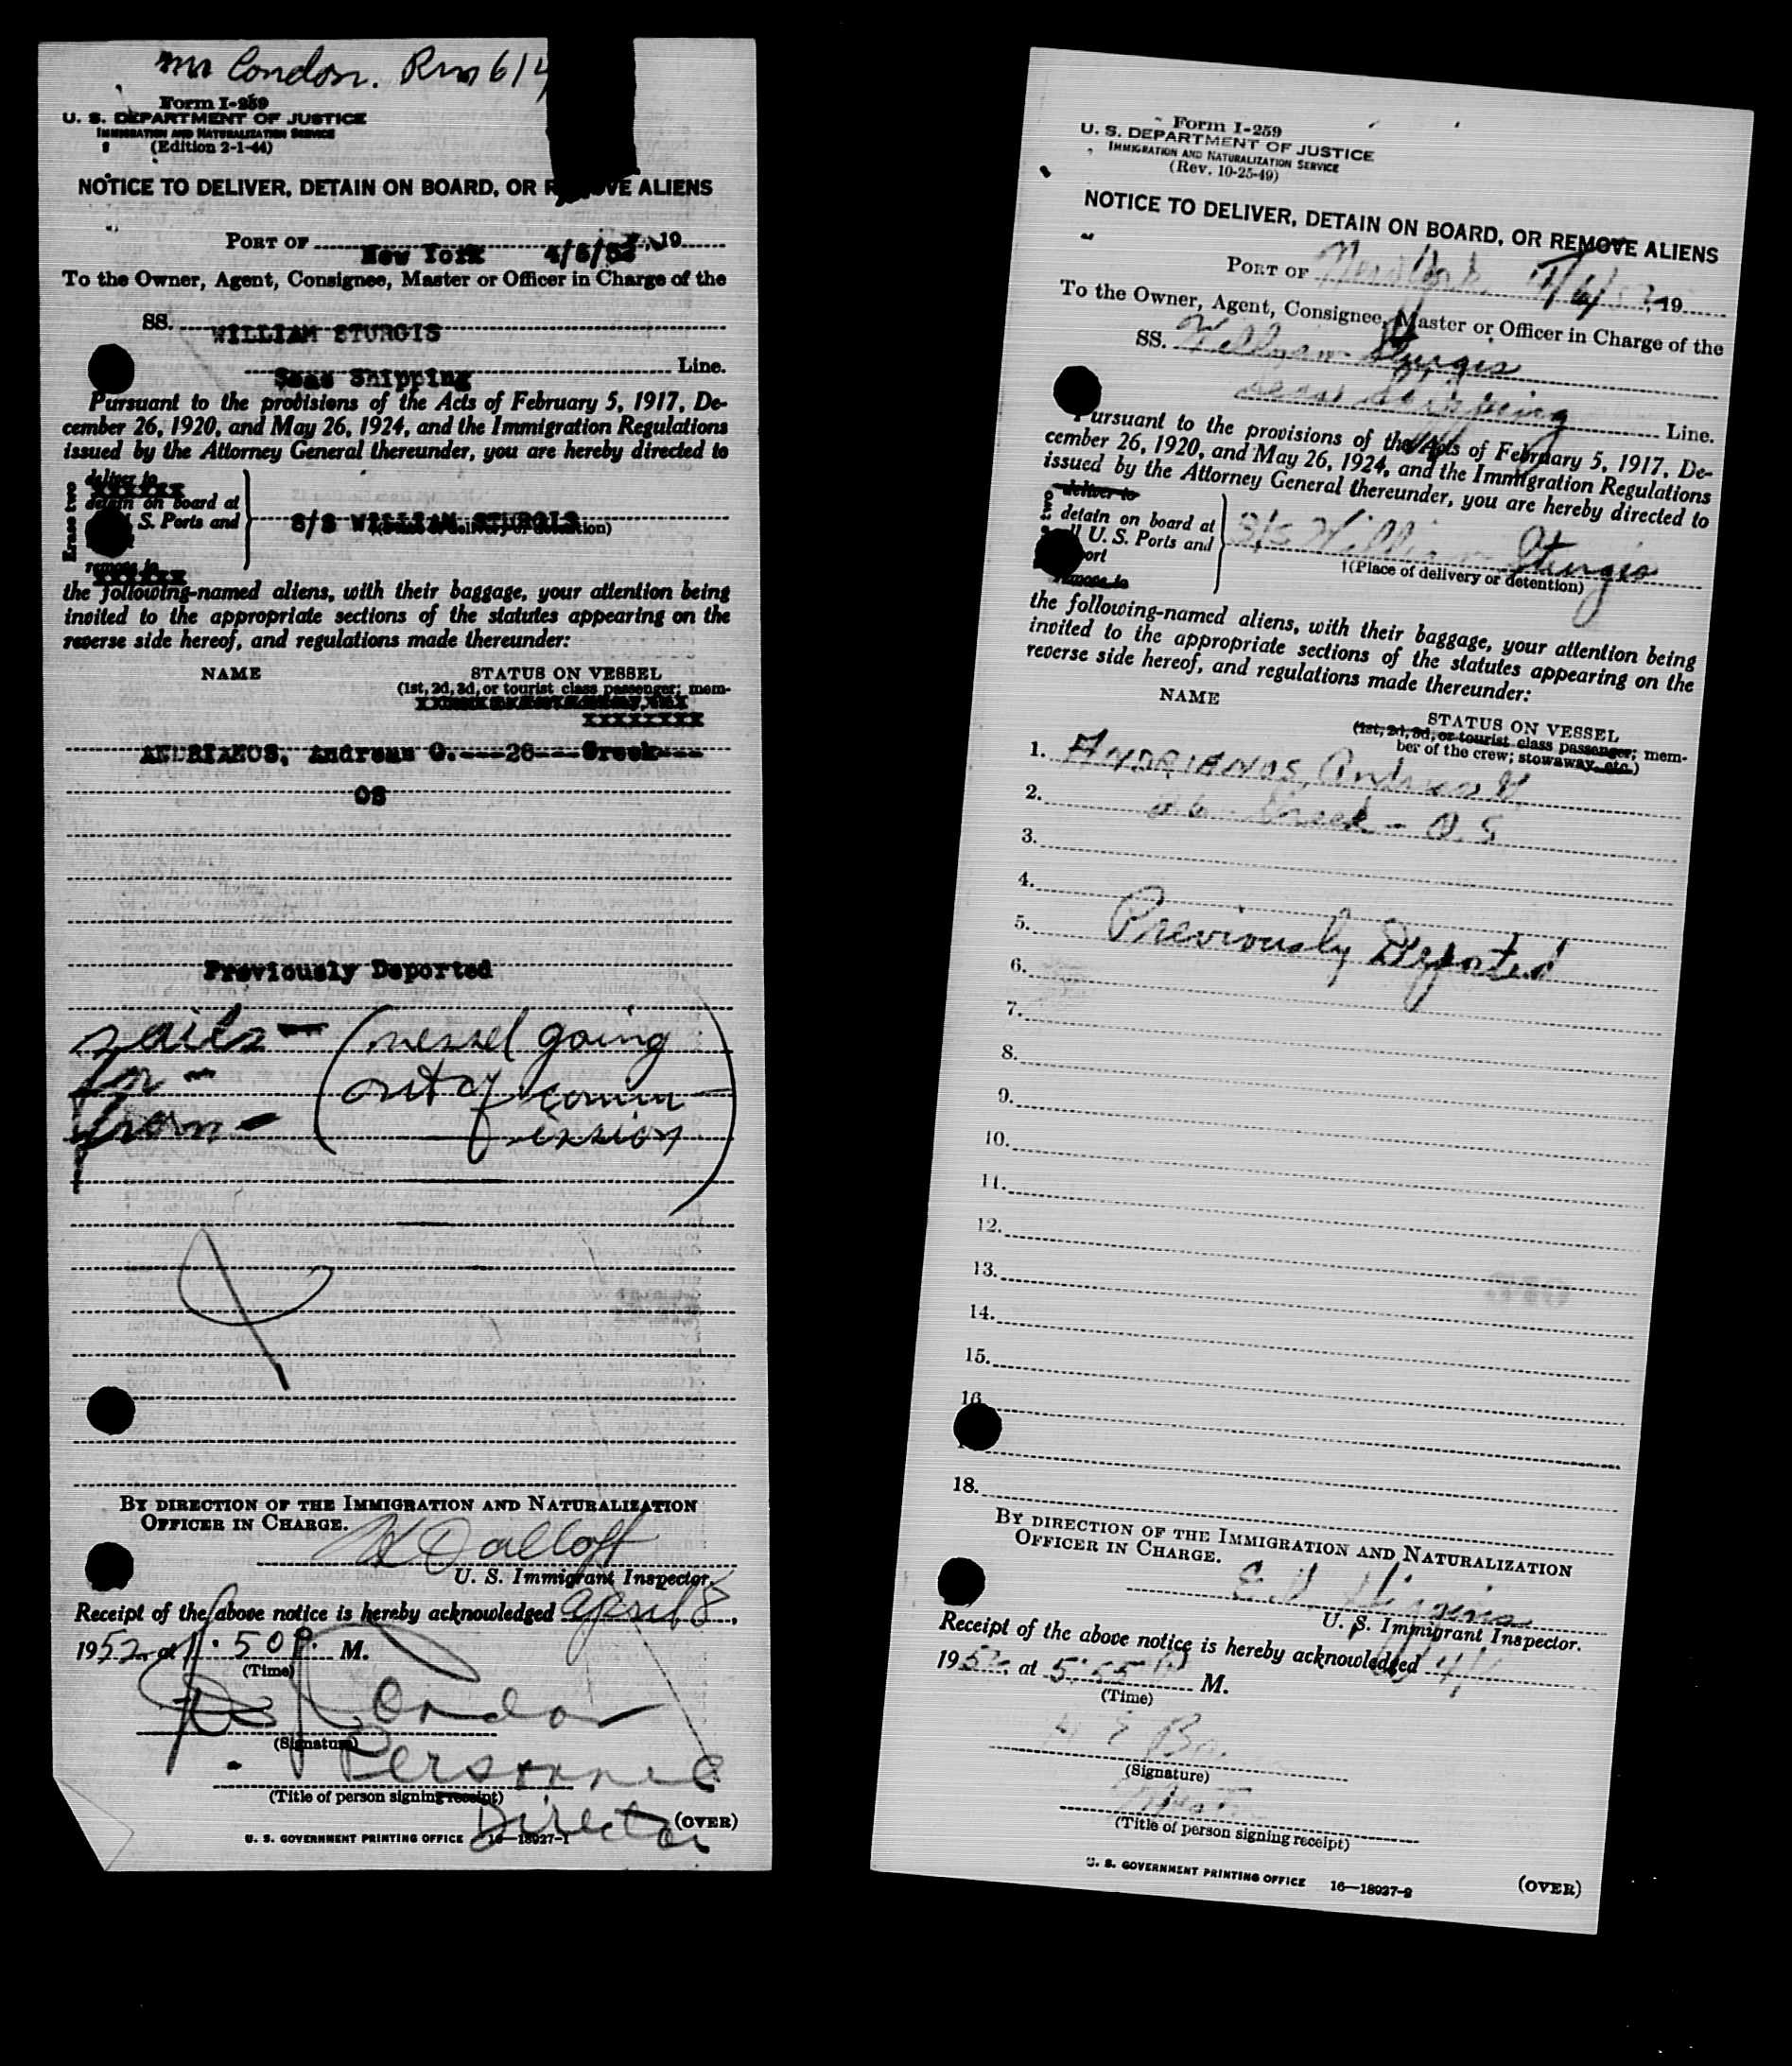 Mr Condon. Rm 614
Form I-259
U. S. DEPARTMENT OF JUSTICE
IMMIGRATION AND NATURALIZATION SERVICE
(Edition 2-1-44)
NOTICE TO DELIVER, DETAIN ON BOARD, OR REMOVE ALIENS
PORT OF New York 4/6/52, 19
To the Owner, Agent, Consignee, Master or Officer in Charge of the
SS. WILLIAM STURGIS
Seas Shipping Line.
Pursuant to the provisions of the Acts of February 5, 1917, De-
cember 26, 1920, and May 26, 1924, and the Immigration Regulations
issued by the Attorney General thereunder, you are hereby directed to
Erase two
deliver to
detain on board at
S. Ports and
S/S WILLIAM STURGIS
remove to
the following-named aliens, with their baggage, your attention being
invited to the appropriate sections of the statutes appearing on the
reverse side hereof, and regulations made thereunder:
NAME STATUS ON VESSEL
(1st, 2d, 3d, or tourist class passenger; mem-
ANDRIANOS, Andreas G.---26---Greek---
OS
Previously Deported
sails - (vessel going
for - out of comm-
from - ission)
BY DIRECTION OF THE IMMIGRATION AND NATURALIZATION
OFFICER IN CHARGE.
U. S. Immigrant Inspector.
Receipt of the above notice is hereby acknowledged April 8,
1952, at 1:50 P. M.
(Time)
Condon
(Signature)
Personnel
(Title of person signing receipt)
Director
(OVER)
U. S. GOVERNMENT PRINTING OFFICE 16—18927-1
Form I-259
U. S. DEPARTMENT OF JUSTICE
IMMIGRATION AND NATURALIZATION SERVICE
(Rev. 10-25-49)
NOTICE TO DELIVER, DETAIN ON BOARD, OR REMOVE ALIENS
PORT OF New York 4/6/52, 19
To the Owner, Agent, Consignee, Master or Officer in Charge of the
SS. William Sturgis
Seas Shipping Line.
Pursuant to the provisions of the Acts of February 5, 1917, De-
cember 26, 1920, and May 26, 1924, and the Immigration Regulations
issued by the Attorney General thereunder, you are hereby directed to
two
deliver to
detain on board at
U. S. Ports and
port
S/S William Sturgis
†(Place of delivery or detention)
remove to
the following-named aliens, with their baggage, your attention being
invited to the appropriate sections of the statutes appearing on the
reverse side hereof, and regulations made thereunder:
NAME STATUS ON VESSEL
(1st, 2d, 3d, or tourist class passenger; mem-
ber of the crew; stowaway, etc.)
1. ANDRIANOS, Andreas G.
2. 26 Greek - O.S
3.
4.
5. Previously Deported
6.
7.
8.
9.
10.
11.
12.
13.
14.
15.
16.
18.
BY DIRECTION OF THE IMMIGRATION AND NATURALIZATION
OFFICER IN CHARGE.
U. S. Immigrant Inspector.
Receipt of the above notice is hereby acknowledged
1952, at 5:55 P M.
(Time)
(Signature)
Master
(Title of person signing receipt)
U. S. GOVERNMENT PRINTING OFFICE 16—18927-2
(OVER)